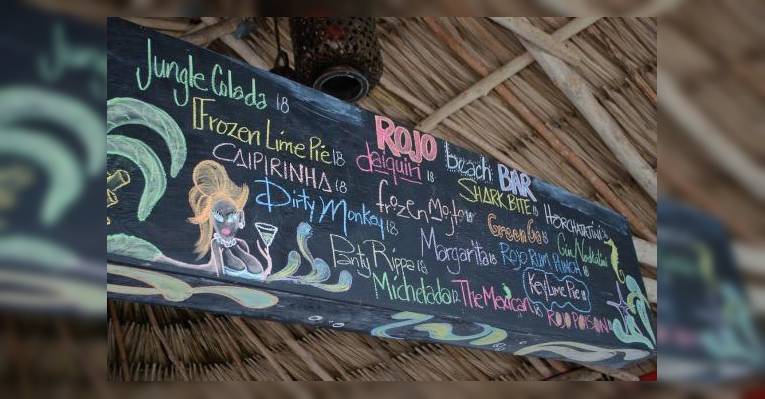 Jungle Colada 18
Frozen Lime Pie 18
CAIPIRINHA 18
Dirty Monkey 18
Panty Rippa 18
Michelado 12
ROJO beach BAR
daiquiri 18
frozen Mojito 18
Margarita 18
The Mexican 18
SHARK BITE 18
Green Go 18
ROJO RUM PUNCH 18
Key Lime Pie 18
ROJO POISON
HORCHATATINI